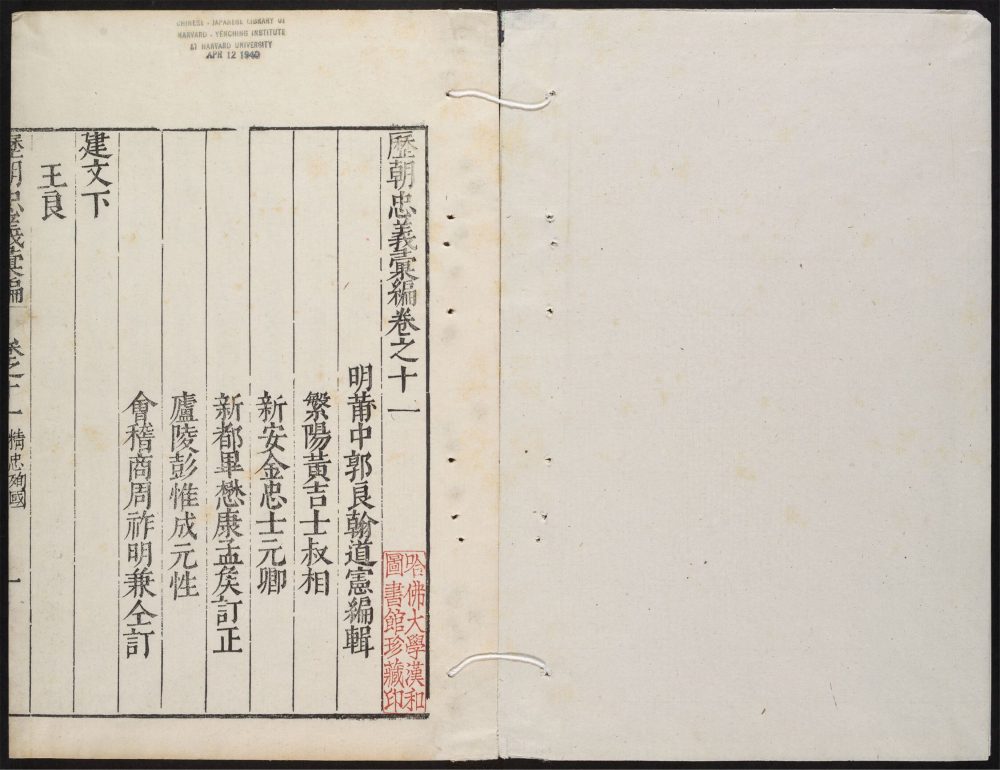 CHINESE - JAPANESE LIBRARY OF
HARVARD - YENCHING INSTITUTE
AT HARVARD UNIVERSITY
APR 12 1940
歷朝忠義彙編卷之十一
明莆中郭良翰道憲編輯
繁陽黃吉士叔相
新安金忠士元卿
新都畢懋康孟矦訂正
廬陵彭惟成元性
會稽商周祚明兼仝訂
建文下
王良
歷朝忠義彙編
卷之十一
精忠殉國
一
哈佛大學漢和
圖書館珍藏印